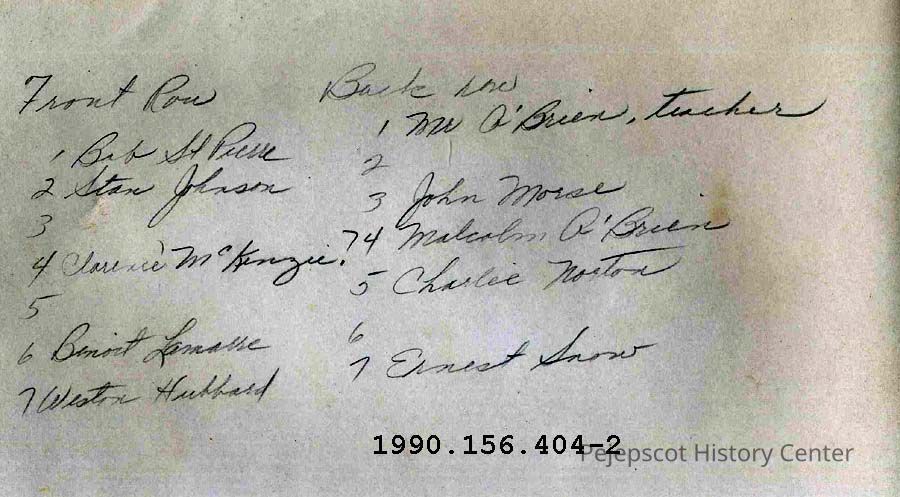 Front Row
1 Bob St Pierre
2 Stan Johnson
3
4 Clarence McKenzie?
5
6 Benoit Lamarre
7 Weston Hubbard
Back row
1 Mr O'Brien, teacher
2
3 John Morse
?4 Malcolm O'Brien
5 Charlie Norton
6
7 Ernest Snow
1990.156.404-2
Pejepscot History Center